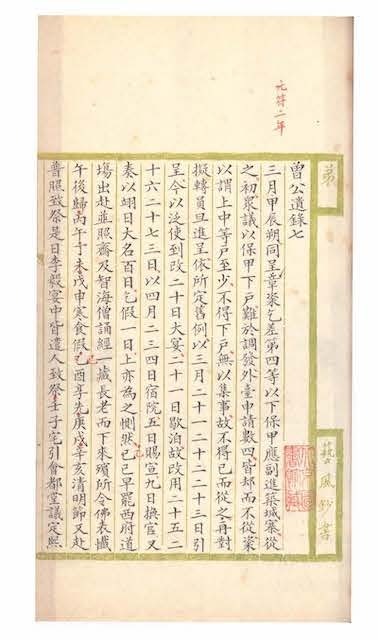 元符二年
曾公遺錄七
三月甲辰朔同呈章楶乞差第四等以下保甲應副進築城寨從
之初衆議以保甲下戶難於調發外臺申請數四皆却而不從楶
以謂上中等戶至少不得下戶無以集事故不得已而從之再對
擬轉員且進呈依所定舊例以三月二十一二十二二十三日引
呈今以泛使到改二十日大宴二十一日歇泊故改用二十五二
十六二十七三日以四月二三四日宿院五日賜宣九日換官又
奏以翊日大名百日乞假一日上亦為之惻然乙巳早罷西府道
場出赴莊照齋及智海僧誦經一藏長老而下來殯所令佛表懺
午後歸丙午丁未戊申寒食假己酉享先庚戌辛亥清明節又赴
普照致祭是日李毅宴中皆遣人致祭壬子宅引會都堂議定熙
弟
藝風鈔書